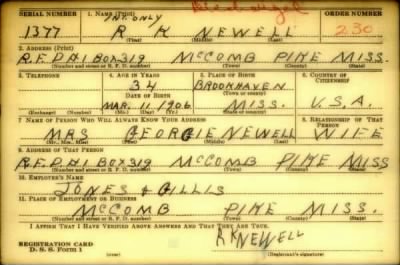 SERIAL NUMBER 1. NAME (Print) INT. ONLY ORDER NUMBER
1377 R K NEWELL 230
(First) (Middle) (Last)
2. ADDRESS (Print)
R.F.D #1 BOX 319 McCOMB PIKE MISS.
(Number and street or R. F. D. number) (Town) (County) (State)
3. TELEPHONE 4. AGE IN YEARS 5. PLACE OF BIRTH 6. COUNTRY OF CITIZENSHIP
34 BROOKHAVEN
DATE OF BIRTH (Town or county)
MAR. 11. 1906 MISS. U.S.A.
(Exchange) (Number) (Mo.) (Day) (Yr.) (State or country)
7. NAME OF PERSON WHO WILL ALWAYS KNOW YOUR ADDRESS 8. RELATIONSHIP OF THAT PERSON
MRS GEORGIE NEWELL WIFE
(Mr., Mrs., Miss) (First) (Middle) (Last)
9. ADDRESS OF THAT PERSON
R.F.D #1 BOX 319 McCOMB PIKE MISS
(Number and street or R. F. D. number) (Town) (County) (State)
10. EMPLOYER'S NAME
JONES & GILLIS
11. PLACE OF EMPLOYMENT OR BUSINESS
McCOMB PIKE MISS.
(Number and street or R. F. D. number) (Town) (County) (State)
I AFFIRM THAT I HAVE VERIFIED ABOVE ANSWERS AND THAT THEY ARE TRUE.
REGISTRATION CARD R K NEWELL
D. S. S. Form 1 (Registrant's signature)